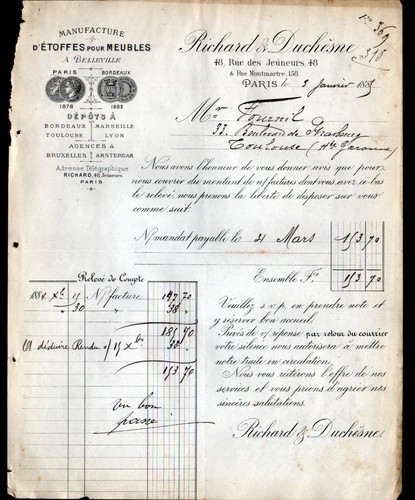 MANUFACTURE
D'ÉTOFFES POUR MEUBLES
À BELLEVILLE
PARIS BORDEAUX
1878 1882
DÉPÔTS À
BORDEAUX MARSEILLE
TOULOUSE LYON
AGENCES À
BRUXELLES AMSTERDAM
Adresse Télégraphique
RICHARD, 48, Jeûneurs
PARIS
Richard & Duchêsne
48, Rue des Jeûneurs, 48
& Rue Montmartre, 158
PARIS le 3 Janvier 1885
Mr Fournil
33 Boulevard de Strasbourg
Toulouse (Hte Garonne)
Nous avons l'honneur de vous donner avis que pour
nous couvrir du montant de n/ factures dont vous avez ci-bas
le relevé, nous prenons la liberté de disposer sur vous
comme suit.
N/ mandat payable le 31 Mars 153 70
Ensemble Frs 153 70
Veuillez s.v.p. en prendre note et
y réserver bon accueil.
Privés de v/ réponse par retour du courrier
votre silence nous autorisera à mettre
notre traite en circulation.
Nous vous réitérons l'offre de nos
services et vous prions d'agréer nos
sincères salutations.
Richard & Duchêsne
Relevé de Compte
1884 Xbre 15 N/ facture 147 70
30 38
185 70
A déduire Rendu 15 Xbre 32
153 70
vu bon